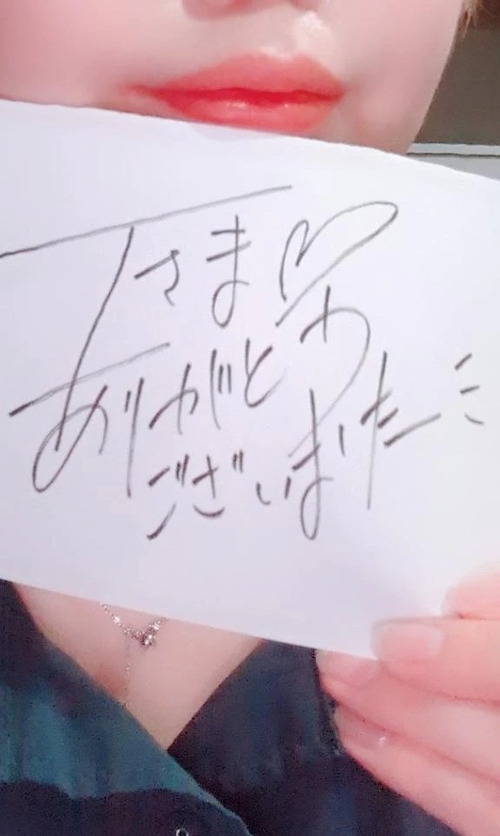 Tさま♡
ありがとう
ございました